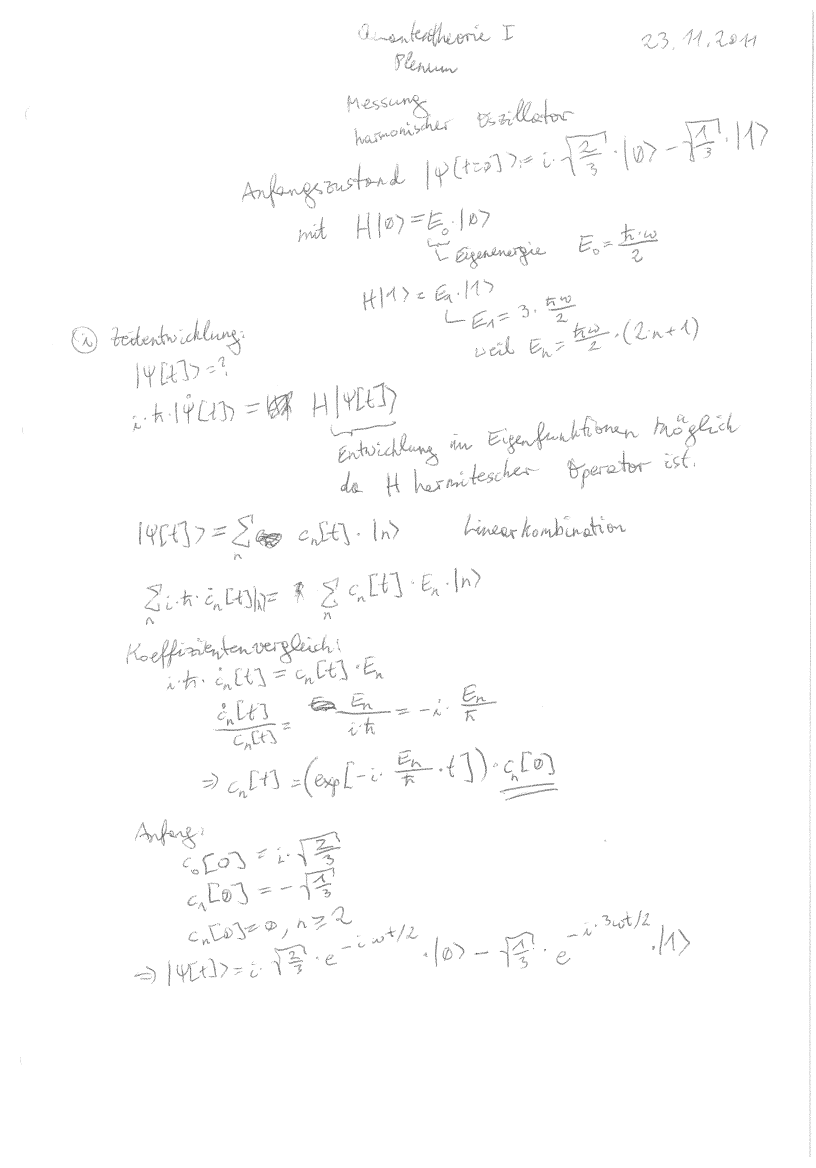 Quantentheorie I 23.11.2011
Plenum
Messung
harmonischer Oszillator
Anfangszustand |Ψ[t=0]⟩ = i·√(2/3)·|0⟩ − √(1/3)·|1⟩
mit H|0⟩ = E₀·|0⟩
Eigenenergie E₀ = ħ·ω/2
H|1⟩ = E₁·|1⟩
E₁ = 3·ħω/2
weil Eₙ = ħω/2·(2·n+1)
ⓘ Zeitentwicklung:
|Ψ[t]⟩ = ?
i·ħ·|Ψ̇[t]⟩ = H|Ψ[t]⟩
Entwicklung in Eigenfunktionen möglich
da H hermitescher Operator ist.
|Ψ[t]⟩ = ∑ₙ cₙ[t]·|n⟩ Linearkombination
∑ₙ i·ħ·ċₙ[t]|n⟩ = ∑ₙ cₙ[t]·Eₙ·|n⟩
Koeffizientenvergleich:
i·ħ·ċₙ[t] = cₙ[t]·Eₙ
ċₙ[t]/cₙ[t] = Eₙ/(i·ħ) = −i·Eₙ/ħ
⇒ cₙ[t] = (exp[−i·Eₙ/ħ·t])·cₙ[0]
Anfang:
c₀[0] = i·√(2/3)
c₁[0] = −√(1/3)
cₙ[0] = 0, n ≥ 2
⇒ |Ψ[t]⟩ = i·√(2/3)·e^(−iωt/2)·|0⟩ − √(1/3)·e^(−i·3ωt/2)·|1⟩